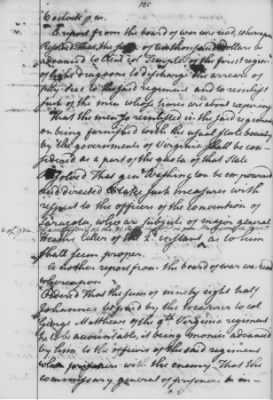 125
6 oClock p.m.
A report from the board of war was read, whereupon
Resolved That the sum of ten thousand dollars be
advanced to Lieut col Temple of the first regiment
of light dragoons to discharge the arrears of
pay due to the said regiment and to reinlist
such of the men whose times are about expiring
That the men so reinlisted in the said regiment
on being furnished with the usual bounty
by the government of Virginia shall be con-
sidered as a part of the quota of that State
Resolved That gen Washington be empowered
and directed to take such measures with
respect to the officers of the convention of
Saratoga, who are subjects of major general
taken the
shall seem proper.
Another report from the board of war was read
whereupon
Ordered That the sum of ninety eight half
Johannes be paid by the treasurer to col
George Matthews of the 9th Virginia regiment
he to be accountable, it being monies advanced
by him to the officers of the said regiment
when prisoners with the enemy. That the
commissary general of prisoners be en-